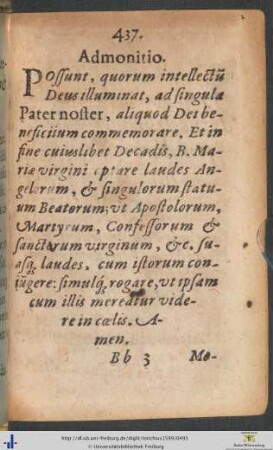 437.
Admonitio.
POssunt, quorum intellectũ
Deus illuminat, ad singula
Pater noster, aliquod Dei be-
neficiium commemorare. Et in
fine cuiuslibet Decadis, B. Ma-
riæ virgini optare laudes An-
gelorum, & singulorum statu-
um Beatorum; vt Apostolorum,
Martyrum, Confessorum &
sanctorum virginum, &c. su-
asq́; laudes, cum istorum con-
iũgere: simulq́; rogare, vt ipsam
cum illis mereatur vide-
re in cœlis. A-
men.
Bb 3 Mo-
© Universitätsbibliothek Freiburg
Baden-Württemberg